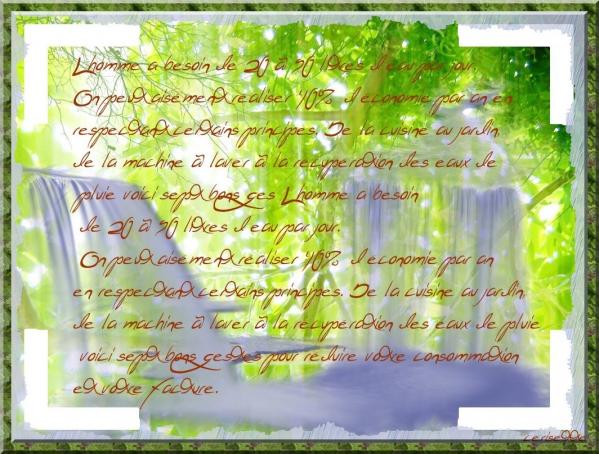 L'homme a besoin de 20 à 50 litres d'eau par jour.
On peut aisement realiser 40% d economie par an en
respectant certains principes. De la cuisine au jardin,
de la machine à laver à la recuperation des eaux de
pluie voici sept bons ges L'homme a besoin
de 20 à 50 litres d'eau par jour.
On peut aisement realiser 40% d economie par an
en respectant certains principes. De la cuisine au jardin,
de la machine à laver à la recuperation des eaux de pluie,
voici sept bons gestes pour reduire votre consommation
et votre facture.